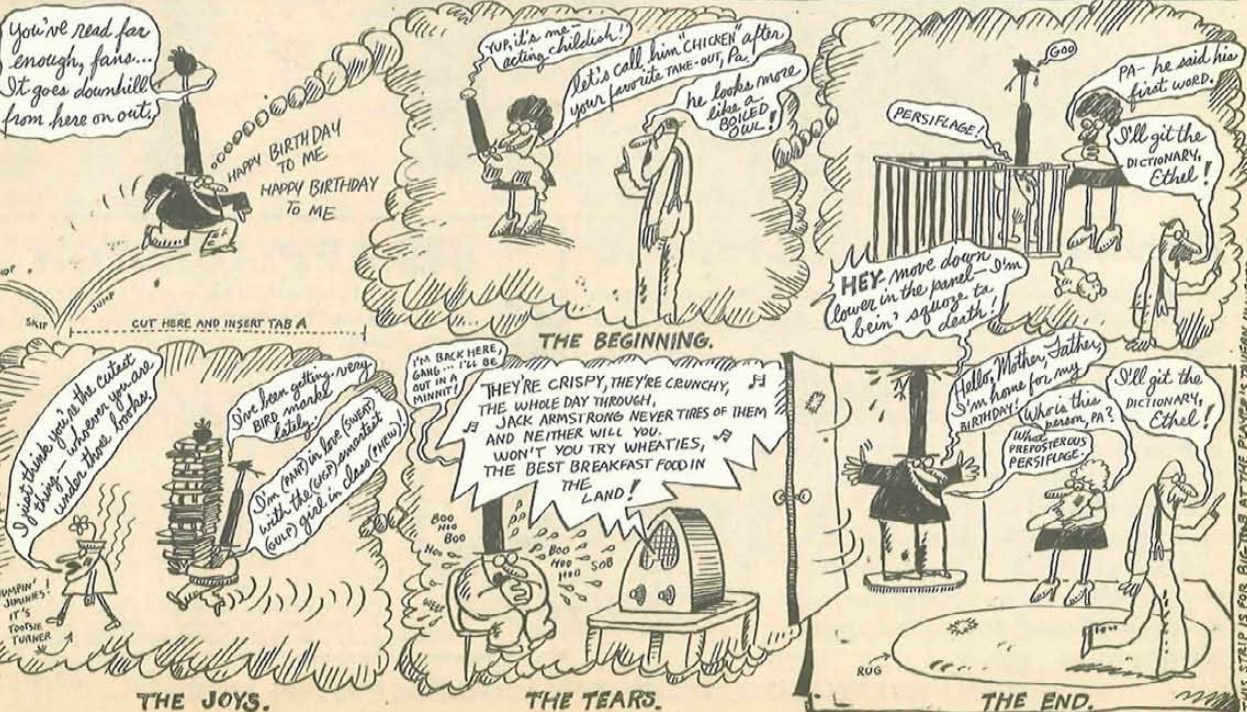 You've read far
enough, fans...
It goes downhill
from here on out.
HAPPY BIRTHDAY
TO ME
HAPPY BIRTHDAY
TO ME
SKIP
JUMP
CUT HERE AND INSERT TAB A
YUP, it's me-
acting childish!
let's call him "CHICKEN" after
your favorite TAKE-OUT, Pa.
he looks more
like a
BOILED
OWL!
THE BEGINNING.
GOO
PERSIFLAGE!
PA- he said his
first WORD.
I'll git the
DICTIONARY,
Ethel!
HEY- move down
lower in the panel- I'm
bein' squoze to
death!
I just think you're the cutest
thing - whoever you are
under those books.
UMPIN'
JIMINIES!
IT'S
TOOTSIE
TURNER
I've been getting very
BIRD marks
lately!
I'm (PANT) in love (SWEAT)
with the (GASP) smartest
(GULP) girl in class (PHEW)!
THE JOYS.
I'M BACK HERE,
GANG... I'LL BE
OUT IN A
MINNIT!
THEY'RE CRISPY, THEY'RE CRUNCHY,
THE WHOLE DAY THROUGH,
JACK ARMSTRONG NEVER TIRES OF THEM
AND NEITHER WILL YOU.
WON'T YOU TRY WHEATIES,
THE BEST BREAKFAST FOOD IN
THE
LAND!
BOO
HOO
BOO
HOO
WEEP
BOO
HOO
HOO
SOB
THE TEARS.
Hello, Mother, Father,
I'm home for my
BIRTHDAY!
Who is this
person, PA?
What
PREPOSTEROUS
PERSIFLAGE.
I'll git the
DICTIONARY,
Ethel!
RUG
THE END.
THIS STRIP IS FOR BIG TINA B AT THE PLAYPD